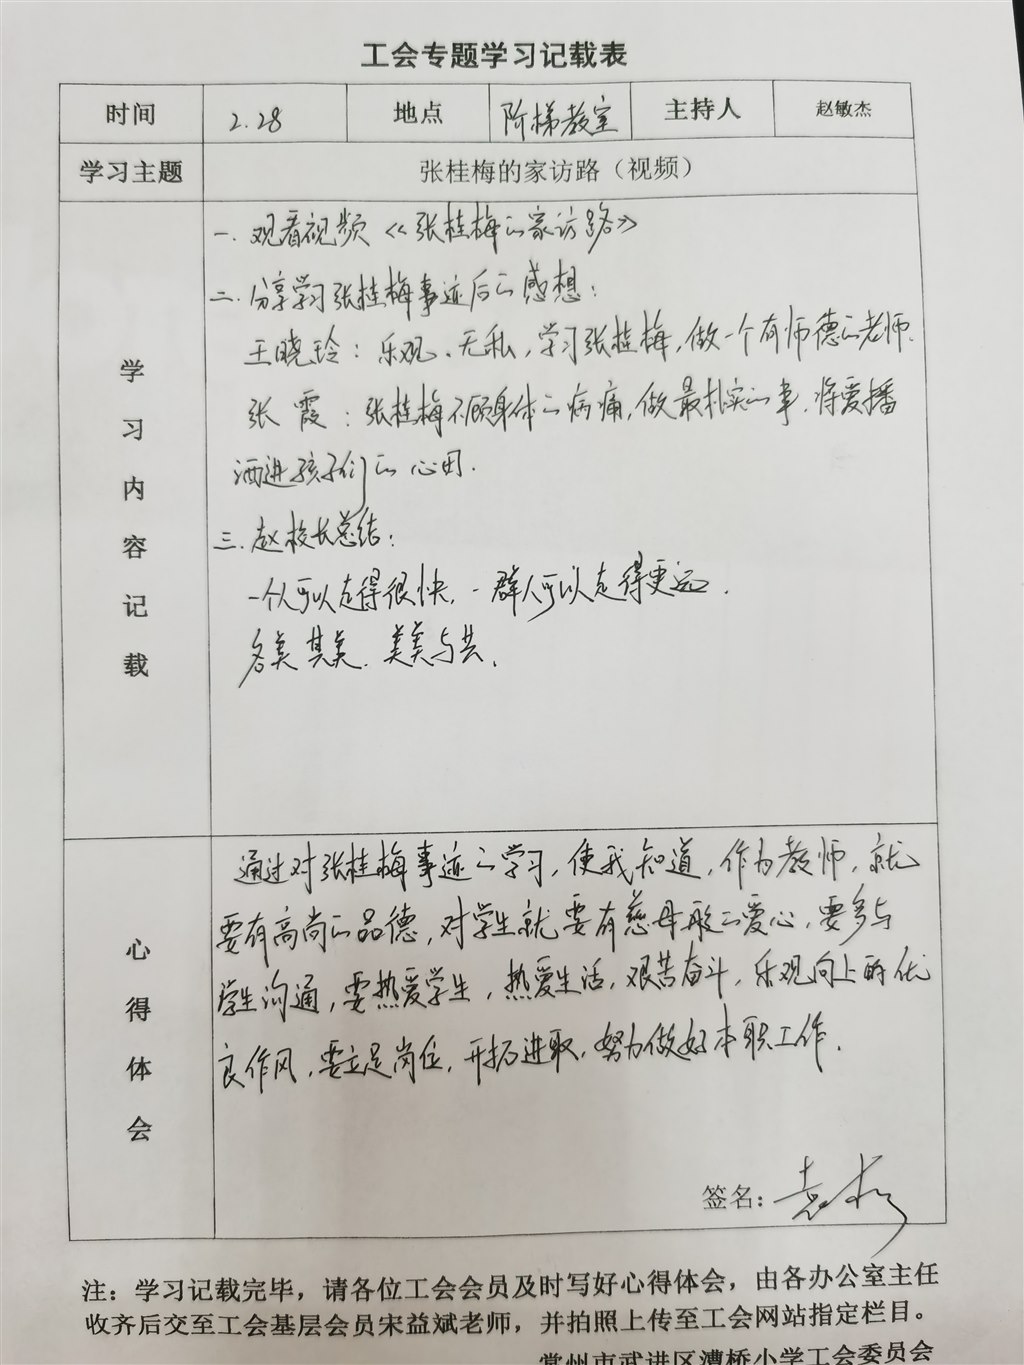 工会专题学习记载表
时间 2.28 地点 阶梯教室 主持人 赵敏杰
学习主题 张桂梅的家访路（视频）
学习内容记载
一.观看视频《张桂梅的家访路》
二.分享学习张桂梅事迹后的感想：
王晓玲：乐观、无私，学习张桂梅，做一个有师德的老师.
张霞：张桂梅不顾身体的病痛，做最扎实的事，将爱播
洒进孩子们的心田.
三.赵校长总结：
一个人可以走得很快，一群人可以走得更远.
各美其美，美美与共.
心得体会
通过对张桂梅事迹的学习，使我知道，作为教师，就
要有高尚的品德，对学生就要有慈母般的爱心，要多与
学生沟通，要热爱学生，热爱生活，艰苦奋斗，乐观向上的优
良作风，要立足岗位，开拓进取，努力做好本职工作.
签名：
注：学习记载完毕，请各位工会会员及时写好心得体会，由各办公室主任
收齐后交至工会基层会员宋益斌老师，并拍照上传至工会网站指定栏目。
常州市武进区漕桥小学工会委员会